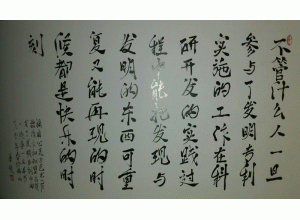 不管什么人一旦
参与了发明专利
实施的工作在科
研开发的实践过
程中能把发现与
发明的东西可重
复又能再现的时
候都是快乐的时
刻